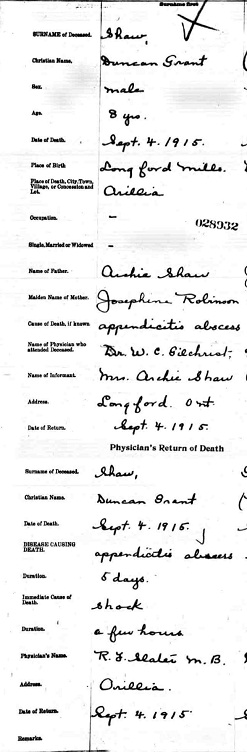 Surname first
SURNAME of Deceased. Shaw,
Christian Name, Duncan Grant
Sex. male
Age. 8 yrs.
Date of Death. Sept. 4. 1915.
Place of Birth Longford Mills.
Place of Death, City, Town, Village, or Concession and Lot. Orillia
Occupation. –
028932
Single, Married or Widowed –
Name of Father. Archie Shaw
Maiden Name of Mother. Josephine Robinson
Cause of Death, if known appendicitis abscess
Name of Physician who attended Deceased. Dr. W. C. Gilchrist,
Name of Informant. Mrs. Archie Shaw
Address. Longford. Ont.
Date of Return. Sept. 4. 1915.
Physician's Return of Death
Surname of Deceased. Shaw,
Christian Name. Duncan Grant
Date of Death. Sept. 4. 1915.
DISEASE CAUSING DEATH. appendicitis abscess
Duration. 5 days.
Immediate Cause of Death. shock
Duration. a few hours
Physician's Name. R. J. Slater M. B.
Address. Orillia.
Date of Return. Sept. 4. 1915
Remarks.